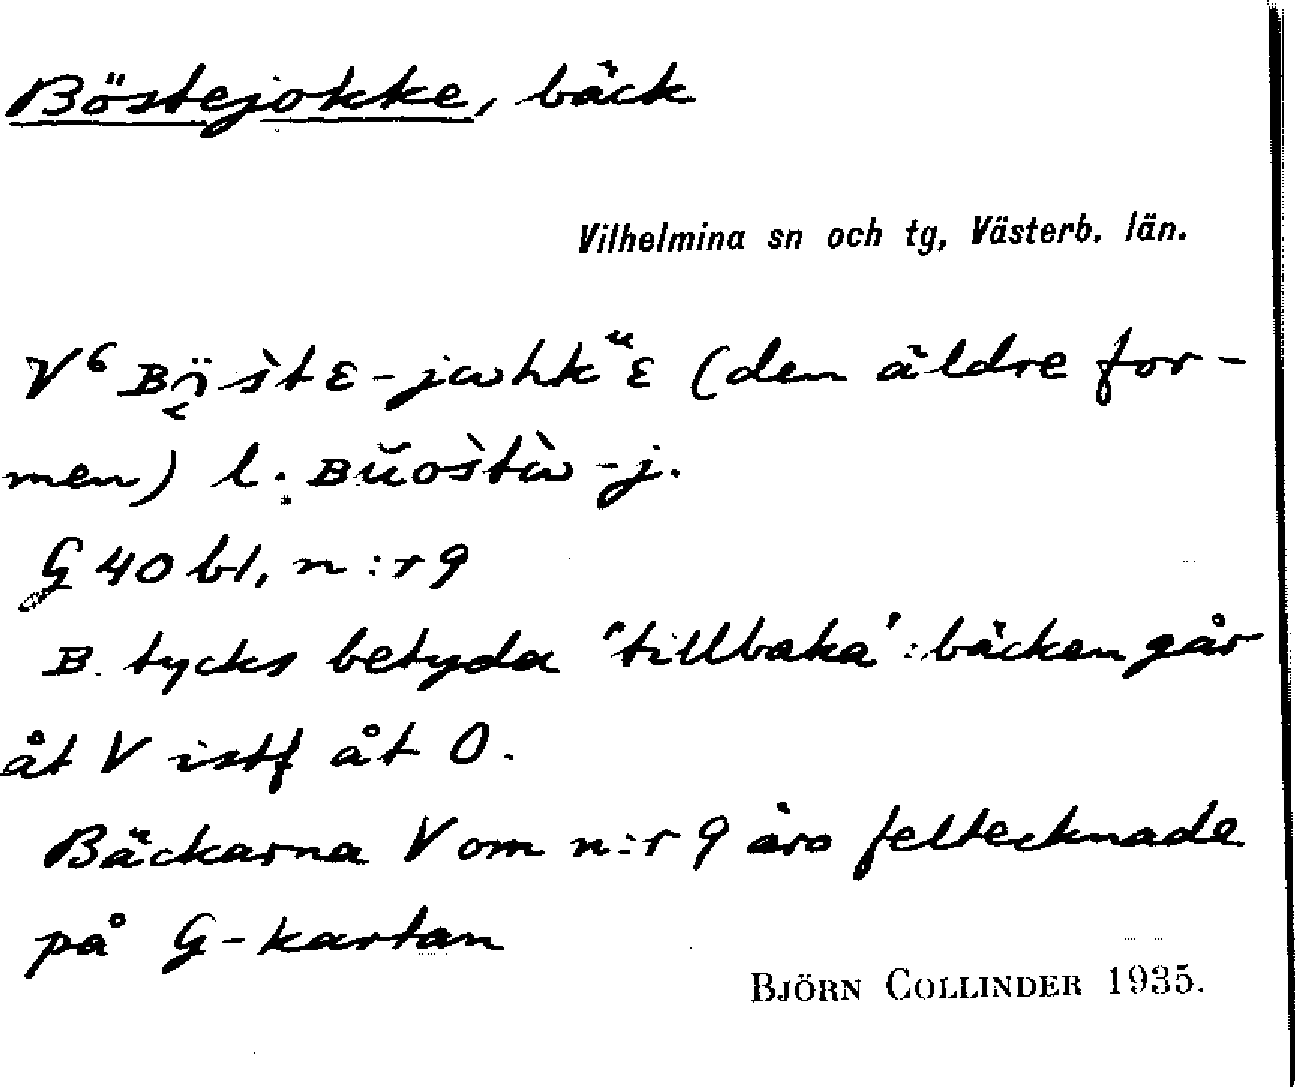 Böstejokke, bäck
Vilhelmina sn och tg, Västerb. län.
V⁶ Bö̀stɛ-jωhkᵘɛ (den äldre for-
men) l. Bŭos̀tὼ-j.
G 40 bl, n:r 9
B. tycks betyda "tillbaka": bäcken går
åt V istf åt O.
Bäckarna V om n:r 9 äro feltecknade
på G-kartan
BJÖRN COLLINDER 1935.